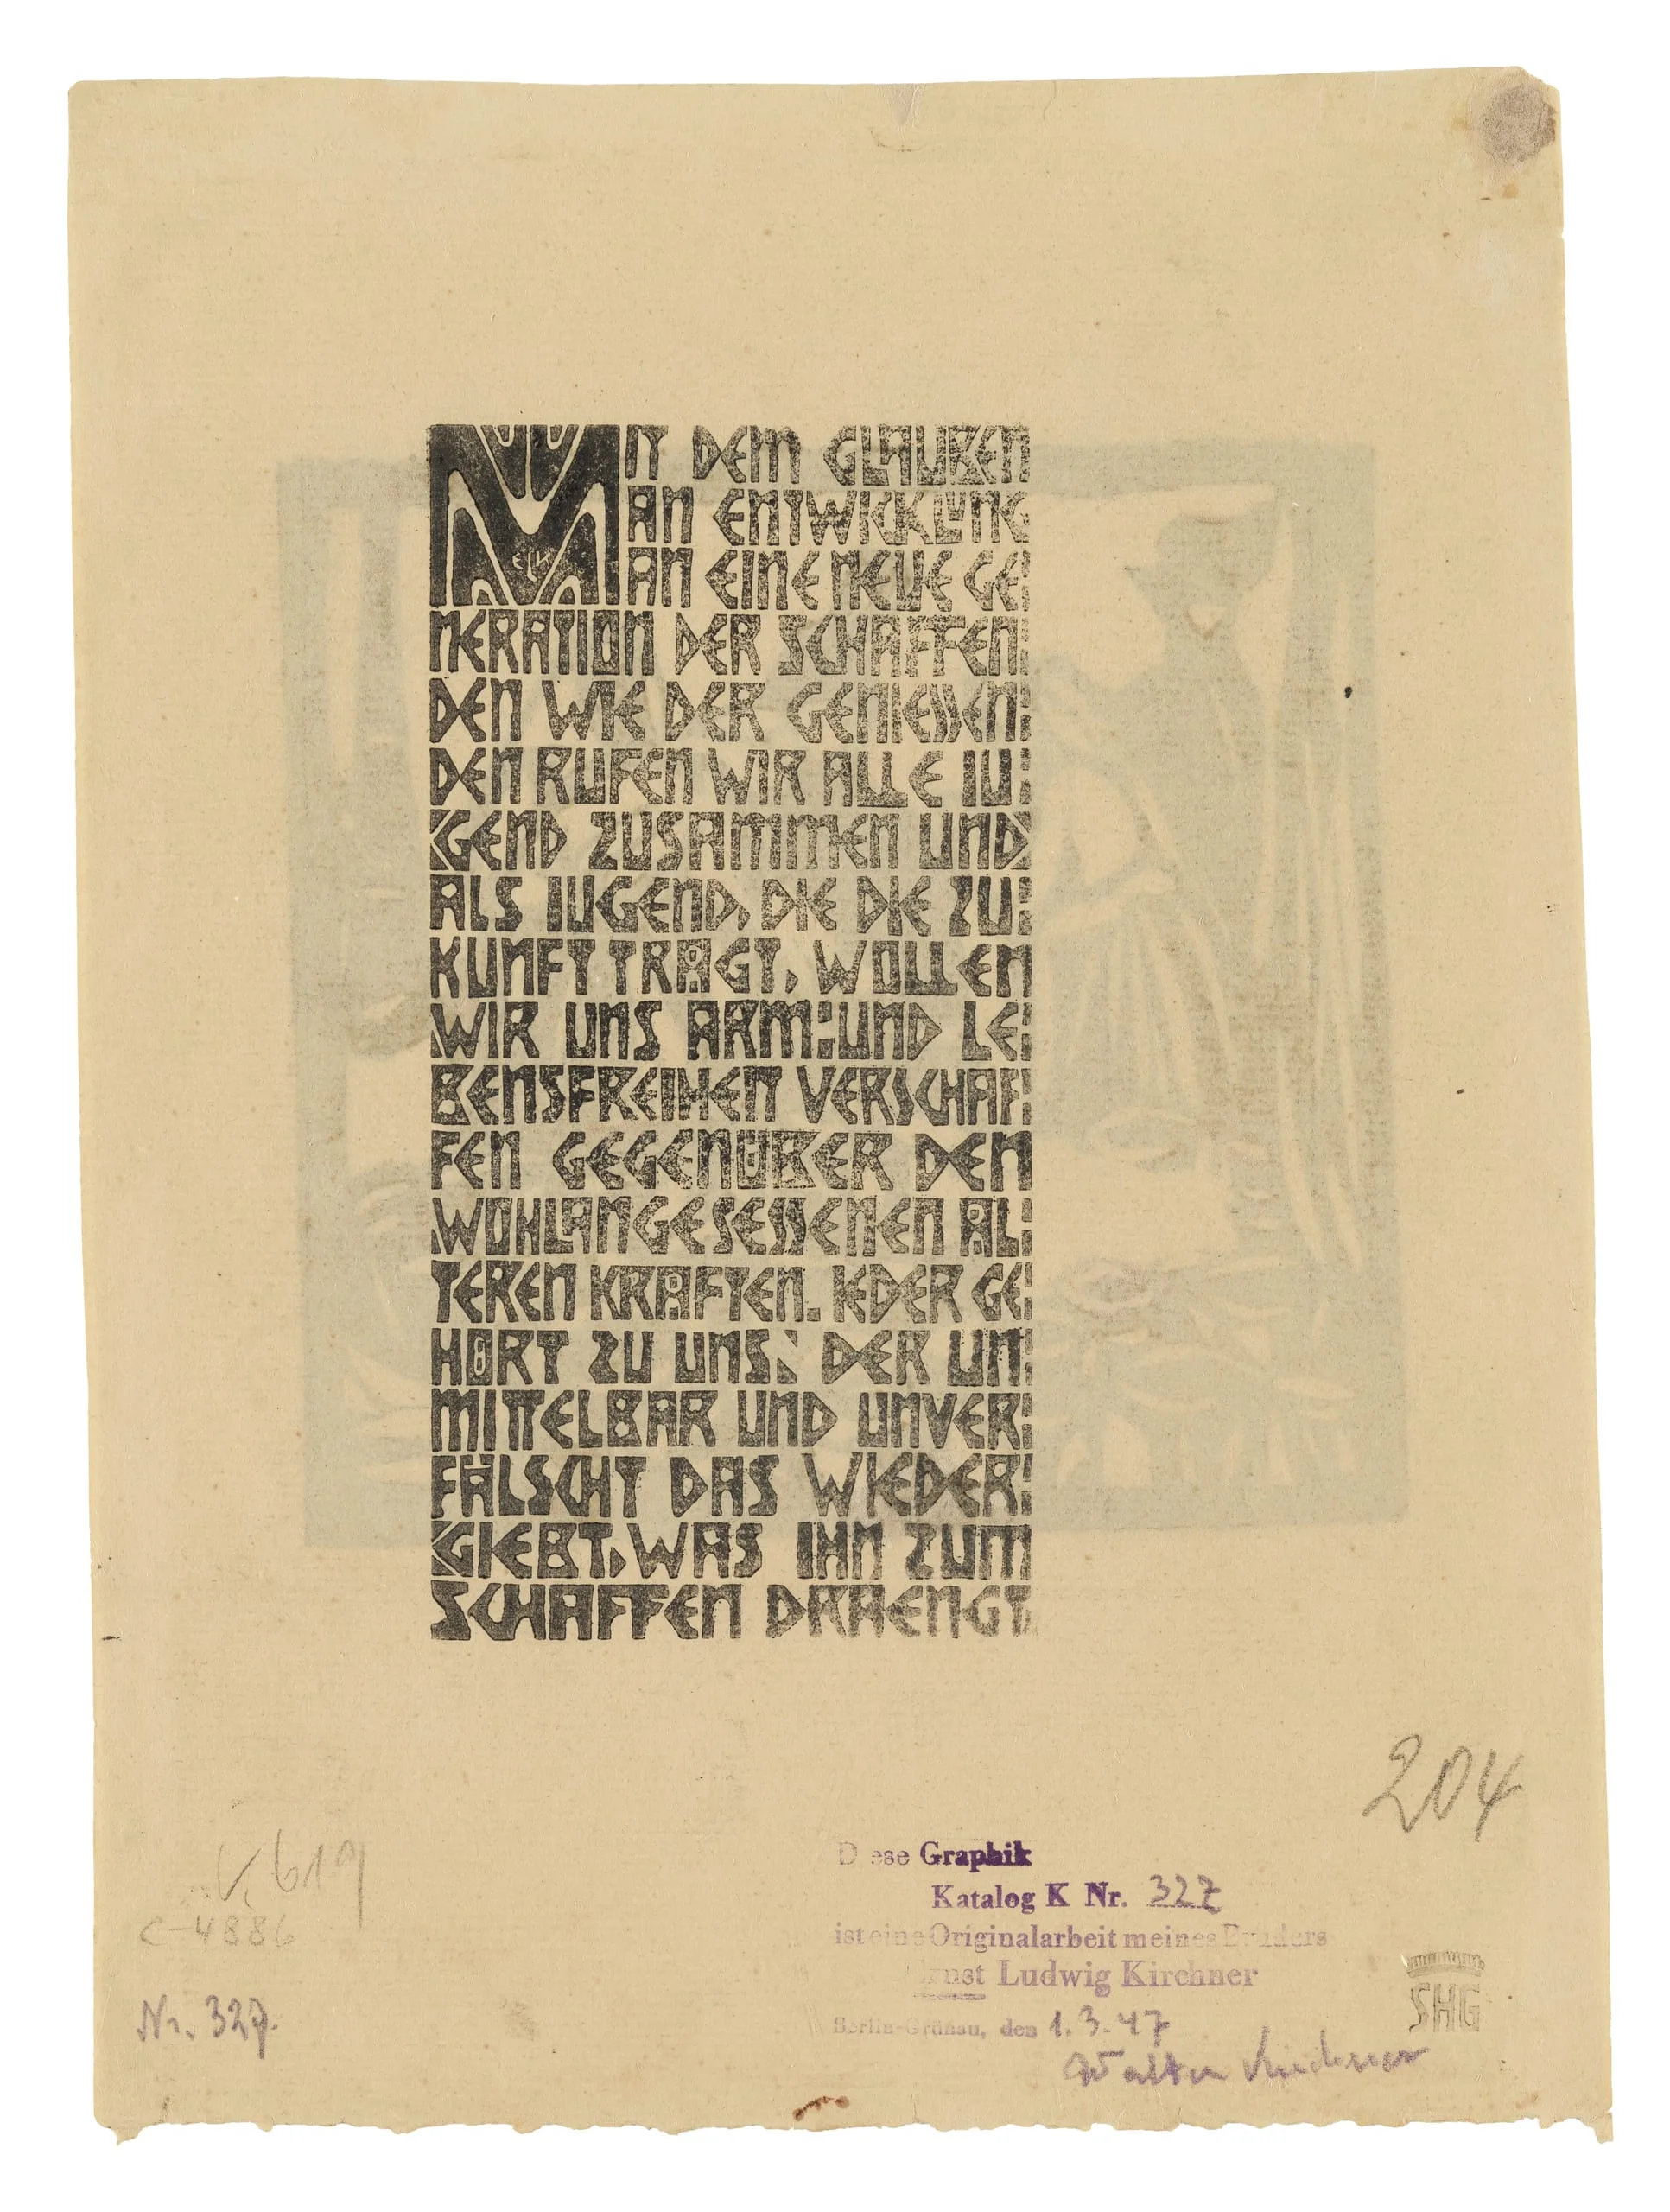 MIT DEM GLAUBEN
AN ENTWICKLUNG
AN EINE NEUE GE:
NERATION DER SCHAFFEN:
DEN WIE DER GENIESSEN:
DEN RUFEN WIR ALLE IU:
GEND ZUSAMMEN UND
ALS IUGEND, DIE DIE ZU:
KUNFT TRÄGT, WOLLEN
WIR UNS ARM:UND LE:
BENSFREIHEIT VERSCHAF:
FEN GEGENÜBER DEN
WOHLANGESESSENEN ÄL:
TEREN KRÄFTEN. IEDER GE:
HÖRT ZU UNS, DER UN:
MITTELBAR UND UNVER:
FÄLSCHT DAS WIEDER:
GIEBT, WAS IHN ZUM
SCHAFFEN DRAENGT
ELK
204
619
C-4886
Nr. 327.
Diese Graphik
Katalog K Nr. 327
ist eine Originalarbeit meines Bruders
Ernst Ludwig Kirchner
Berlin-Grünau, den 1.3.47
Walter Kirchner
SHG